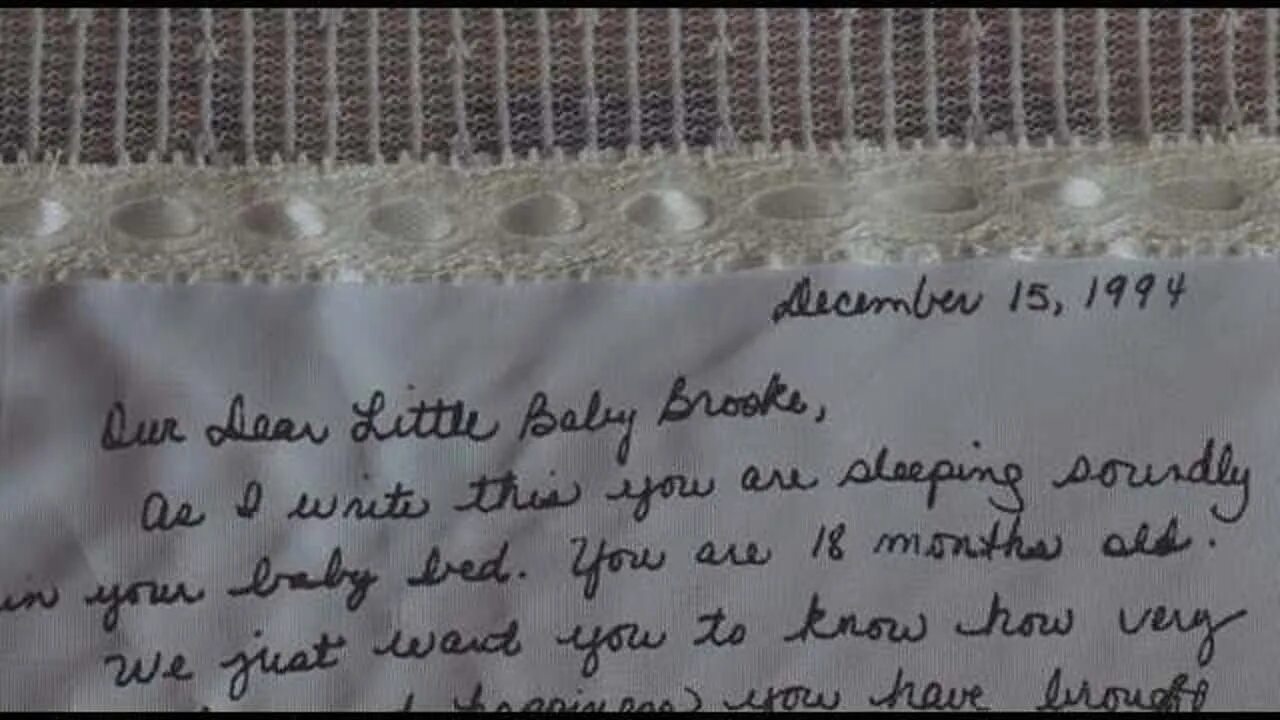 December 15, 1994
Our Dear Little Baby Brooke,
As I write this you are sleeping soundly
in your baby bed. You are 18 months old.
We just want you to know how very
happiness you have brought